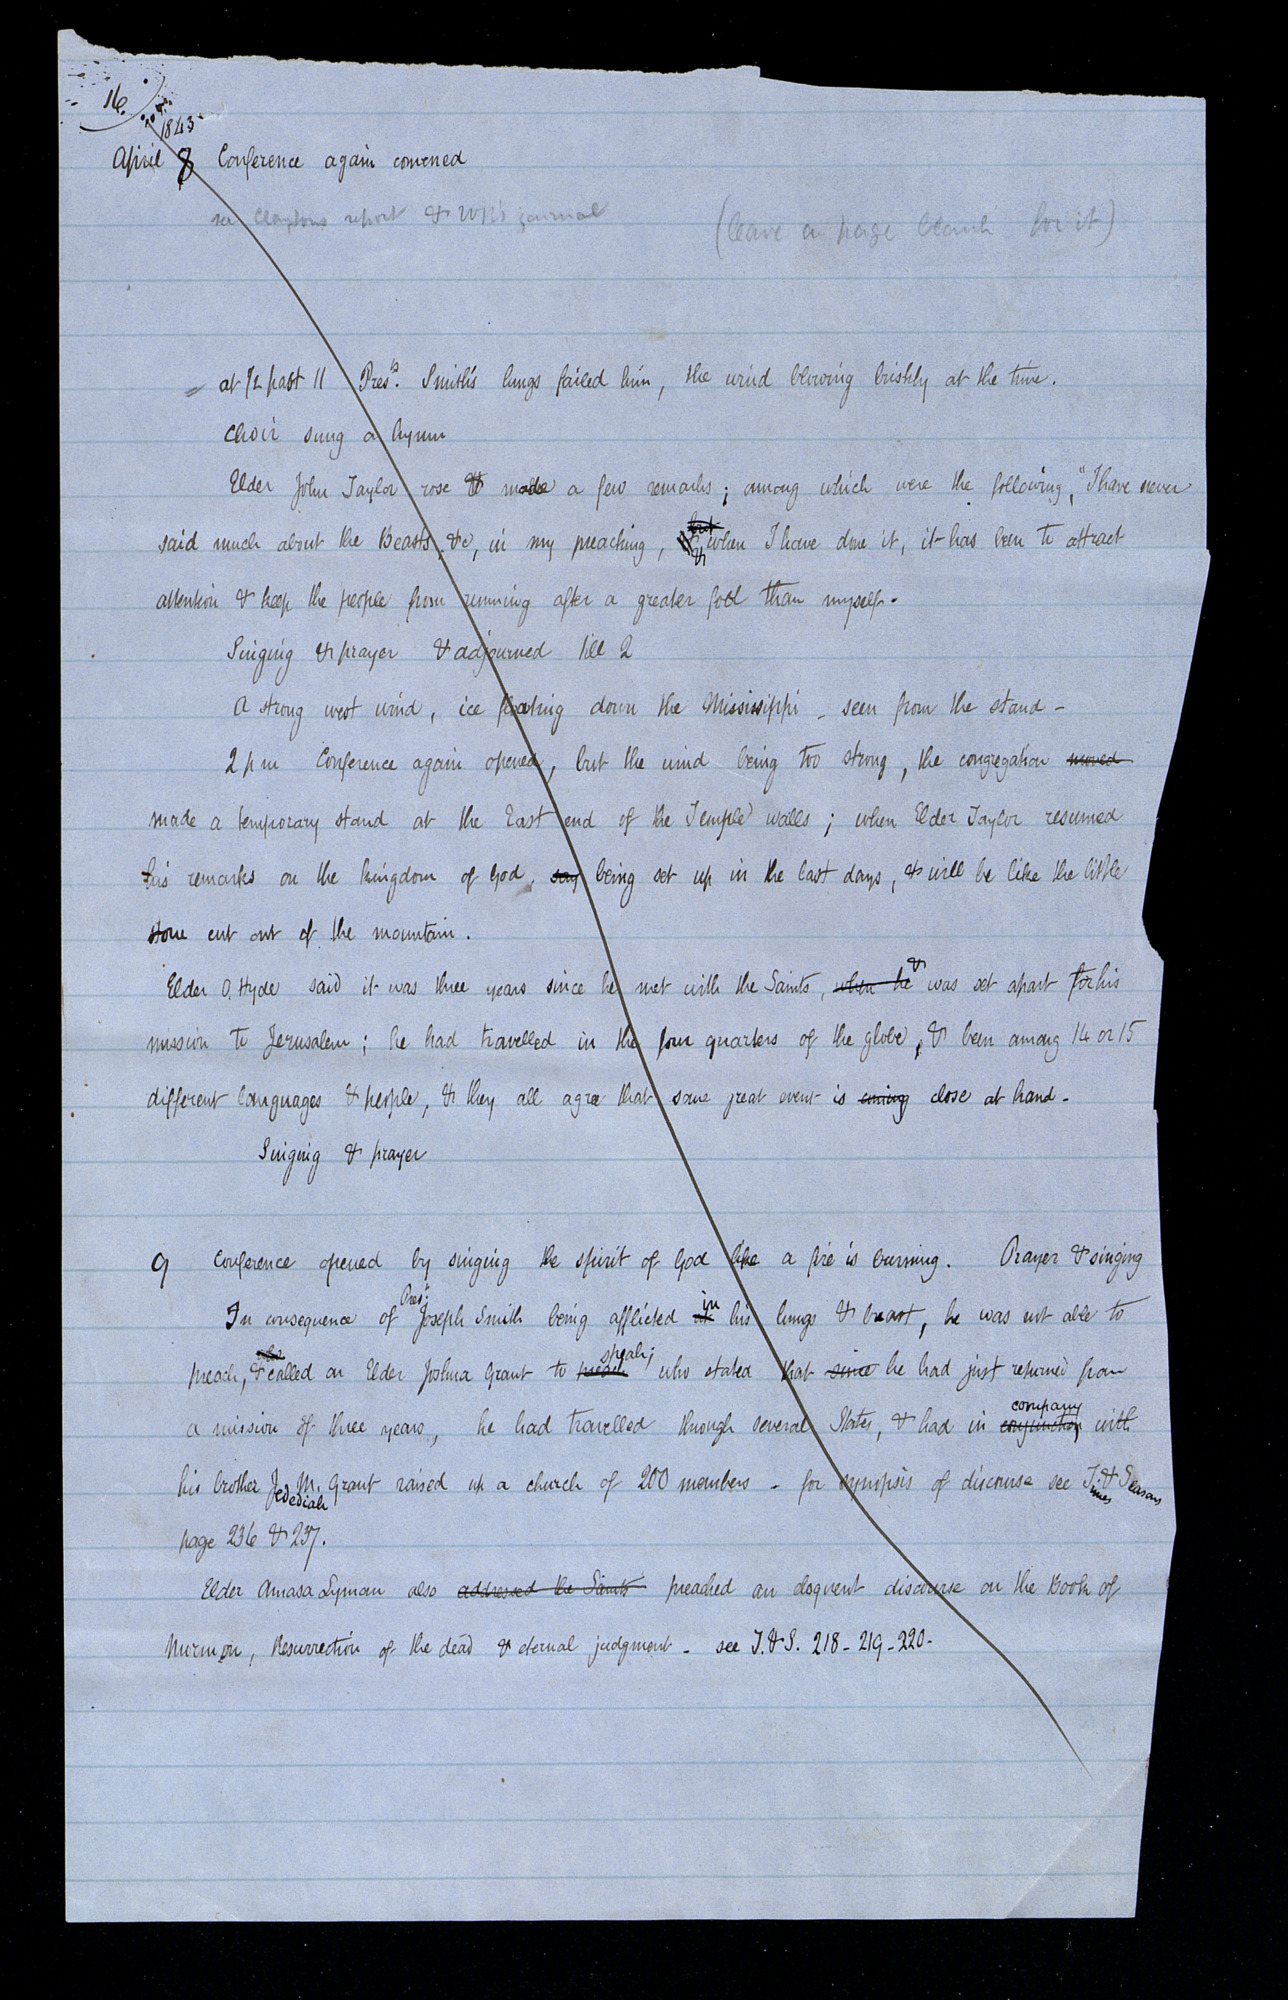 16
1843
April 8 Conference again convened
see Claytons report & WR's journal (leave a page blank for it)
at ½ past 11 Prest. Smith's lungs failed him, the wind blowing briskly at the time.
Choir sung a hymn
Elder John Taylor rose & made a few remarks; among which were the following, "I have never
said much about the Beasts, &c, in my preaching, but & when I have done it, it has been to attract
attention & keep the people from running after a greater fool than myself.
Singing & prayer & adjourned till 2
A strong west wind, ice floating down the Mississippi - seen from the stand -
2 pm Conference again opened, but the wind being too strong, the congregation moved
made a temporary stand at the East end of the Temple walls; when Elder Taylor resumed
his remarks on the kingdom of God, say being set up in the last days, & will be like the little
stone cut out of the mountain.
Elder O. Hyde said it was three years since he met with the Saints, when he & was set apart for his
mission to Jerusalem; he had travelled in the four quarters of the globe, & been among 14 or 15
different languages & people, & they all agree that some great event is coming close at hand -
Singing & prayer
9 Conference opened by singing the spirit of God like a fire is burning. Prayer & singing
In consequence of Prest. Joseph Smith being afflicted in his lungs & breast, he was not able to
preach, & called on Elder Joshua Grant to preach speak; who stated that since he had just returned from
a mission of three years, he had travelled through several States, & had in conjunction company with
his brother Jedediah M. Grant raised up a church of 200 members - for synopsis of discourse see Times & Seasons
page 236 & 237.
Elder Amasa Lyman also addressed the Saints preached an eloquent discourse on the Book of
Mormon, Resurrection of the dead & eternal judgment - see T. & S. 218 - 219 - 220 -